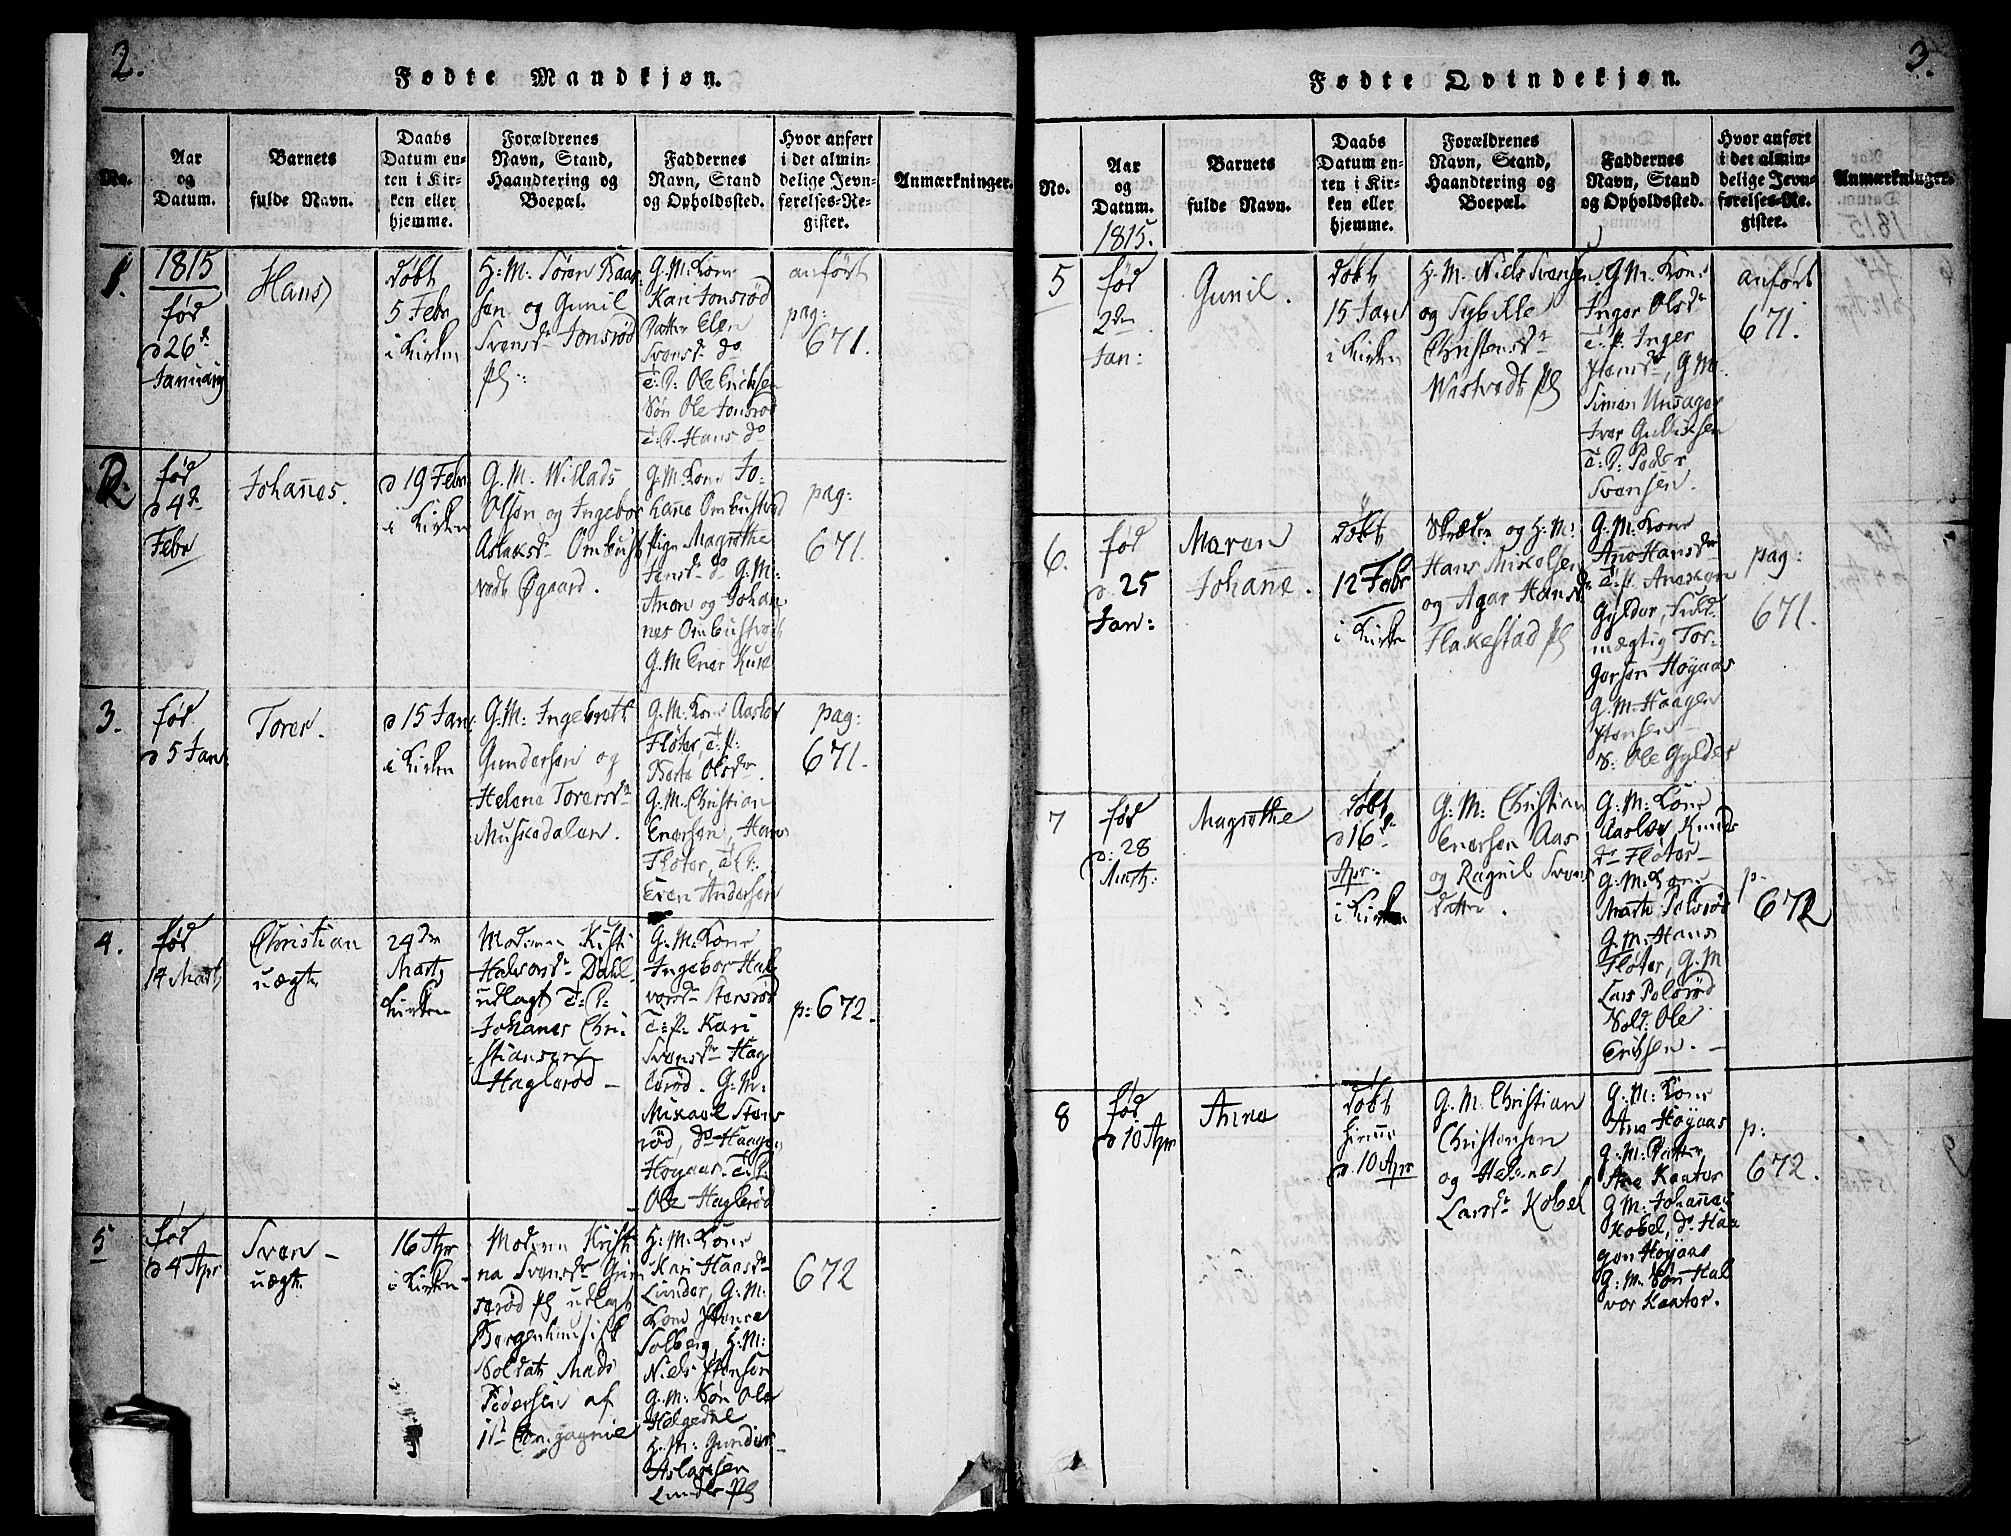 2.
Fødte Mandkjøn.
No.
Aar
og
Datum.
Barnets
fulde Navn.
Daabs
Datum en-
ten i Kir-
ken eller
hjemme.
Forældrenes
Navn, Stand,
Haandtering og
Boepæl.
Faddernes
Navn, Stand
og Opholdssted.
Hvor anført
i det almin-
delige Jevn-
førelses-Re-
gister.
Anmærkninger.
1.
1815
født
d 26de
Januarij
Hans
døbt
5 Febr
i Kirken
H: M: Søren
og Gunil
Svensdr Jonsrød
Pl:
G: M: Kone
Kari Jonsrød
Datter Elen
Svensdr do
T: D: Ole Erichsen
Søn Ole Jonsrød
T: D: Hans do
anført
pag:
671.
2.
fød
d 4de
Febr
Johañes.
d 19 Febr
i Kirken
G. M. Willads
Olsen og Ingebor
Aslaksdr Ombust
vedt Øgaard.
G: M: Kone Jo-
hane Ombustved
Pige Magrethe
Jensdr do G: M:
Anon og Johan
nes Ombustvedt
G. M Ener
pag:
671.
3.
fød
d 5 Jan
Torer.
d 15 Jan:
i Kirken
G: M: Ingebreth
Gundersen og
Helena Torersdr
Muskedalen.
G: M: Kone Aaslov
Fløter, T: P:
Berta Olsdr.
G: M: Christian
Enersen, Hans
Fløter, T: D:
Even Andersen
pag:
671.
4.
fød
14 Marti
Christian
uægte
24de
Marti
Kirken
Moderen Kisti
Halvorsdr Dahl
udlagt T: D:
Johanes Chri-
stiansen
Haglerød
G: M: Kone
Ingebor Hal
vorsdr Stensrød
T: P: Kari
Svensdr Hag
lerød. G: M:
Mikael Stens
rød, do Haagen
Høyaas. T: D:
Ole Haglerød
p: 672.
5
fød
d 4 Apr
Sven
uægte
16 Apr
i Kirken
Moderen Kristi
na Svensdr
Pl udlagt
Bergenhusisk
Soldat Mads
Pedersen af
1ste Compagnie
H: M: Kone
Kari Hansdr
Lunder, G: M:
Kone
Solberg, H: M:
Niels Hansen
G: M: Søn Ole
Helgedal
H: M: Gunder
Aslaksen
Lunder Pl
672
3.
Fødte Qvindekjøn.
No.
Aar
og
Datum.
1815.
Barnets
fulde Navn.
Daabs
Datum en-
ten i Kir-
ken eller
hjemme.
Forældrenes
Navn, Stand,
Haandtering og
Boepæl.
Faddernes
Navn, Stand
og Opholdssted.
Hvor anført
i det almin-
delige Jevn-
førelses-Re-
gister.
Anmærkninger.
5
fød
2den
Jan:
Gunil.
døbt
15 Jan
i Kirken
H: M. Niels Svensen
og Sybille
Christensdr
Westvedt Pl
G: M: Kone
Inger Olsdr
T: P. Inger
Hansdr, G: M.
Simen Unsager
Iver Gulliksen
T: D: Peder
Svensen.
anført
671.
6.
fød
d. 25
Jan:
Maren
Johañe.
døbt
12 Febr
i Kirken
Skræder og H: M:
Hans Mikelsen
og Agar Hansdr
Flakestad Pl
G: M: Kone
Ane Hansdr
T: P.
Gylder, Fuld
mægtig Tor-
gersen Høyaas
G: M: Haagen
Hansen
S: Ole Gylder
pag:
671.
7
fød
d: 28
Marti:
Magrethe
døbt
d 16de
Apr
i Kirken
G: M: Christian
Enersen Aas
og Ragnil Svens
datter.
G: M: Kone
Aaslov Knuds
dr Fløter
G: M: Kone
Marte Polsrød
G: M: Hans
Fløter, G. M
Lars Polsrød
Sold: Ole
Erichsen.
p.
672
8
fød
d 10 Apr
Anne
døbt
hjemme
d. 10 Apr
G: M. Christian
Christensen
og Helene
Larsdr Kobel
G: M: Kone
Ane Høyaas
G: M: Datter
Ane Kantor
G: M: Johannes
Kobel, do Haa
gen Høyaas
G: M: Søn Hal
vor Kantor.
p:
672.